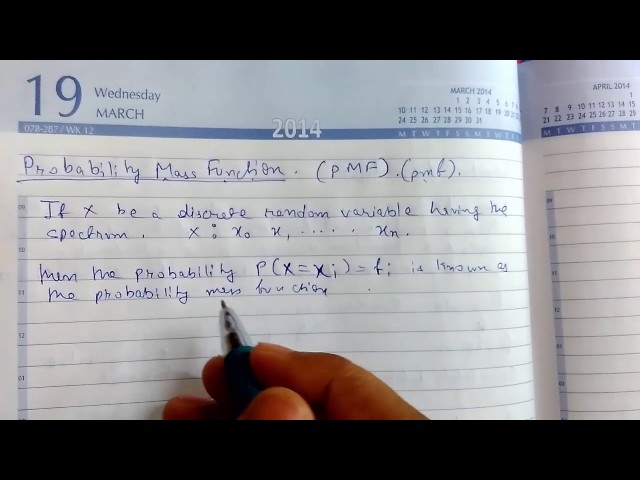 19 Wednesday MARCH
078-287 / WK 12
2014
MARCH 2014
1 2 3 4 5 6 7 8 9
10 11 12 13 14 15 16 17 18 19 20 21 22 23
24 25 26 27 28 29 30 31
M T W T F S S M T W T F S S
APRIL 2014
7 8 9 10 11 12 13
21 22 23 24 25 26 27
M T W T F S S
Probability Mass Function. (PMF).(pmf).
If X be a discrete random variable having the
spectrum. X : x0 x1 ..... xn.
Then the probability P(X=xi)=fi is known as
the probability mass function